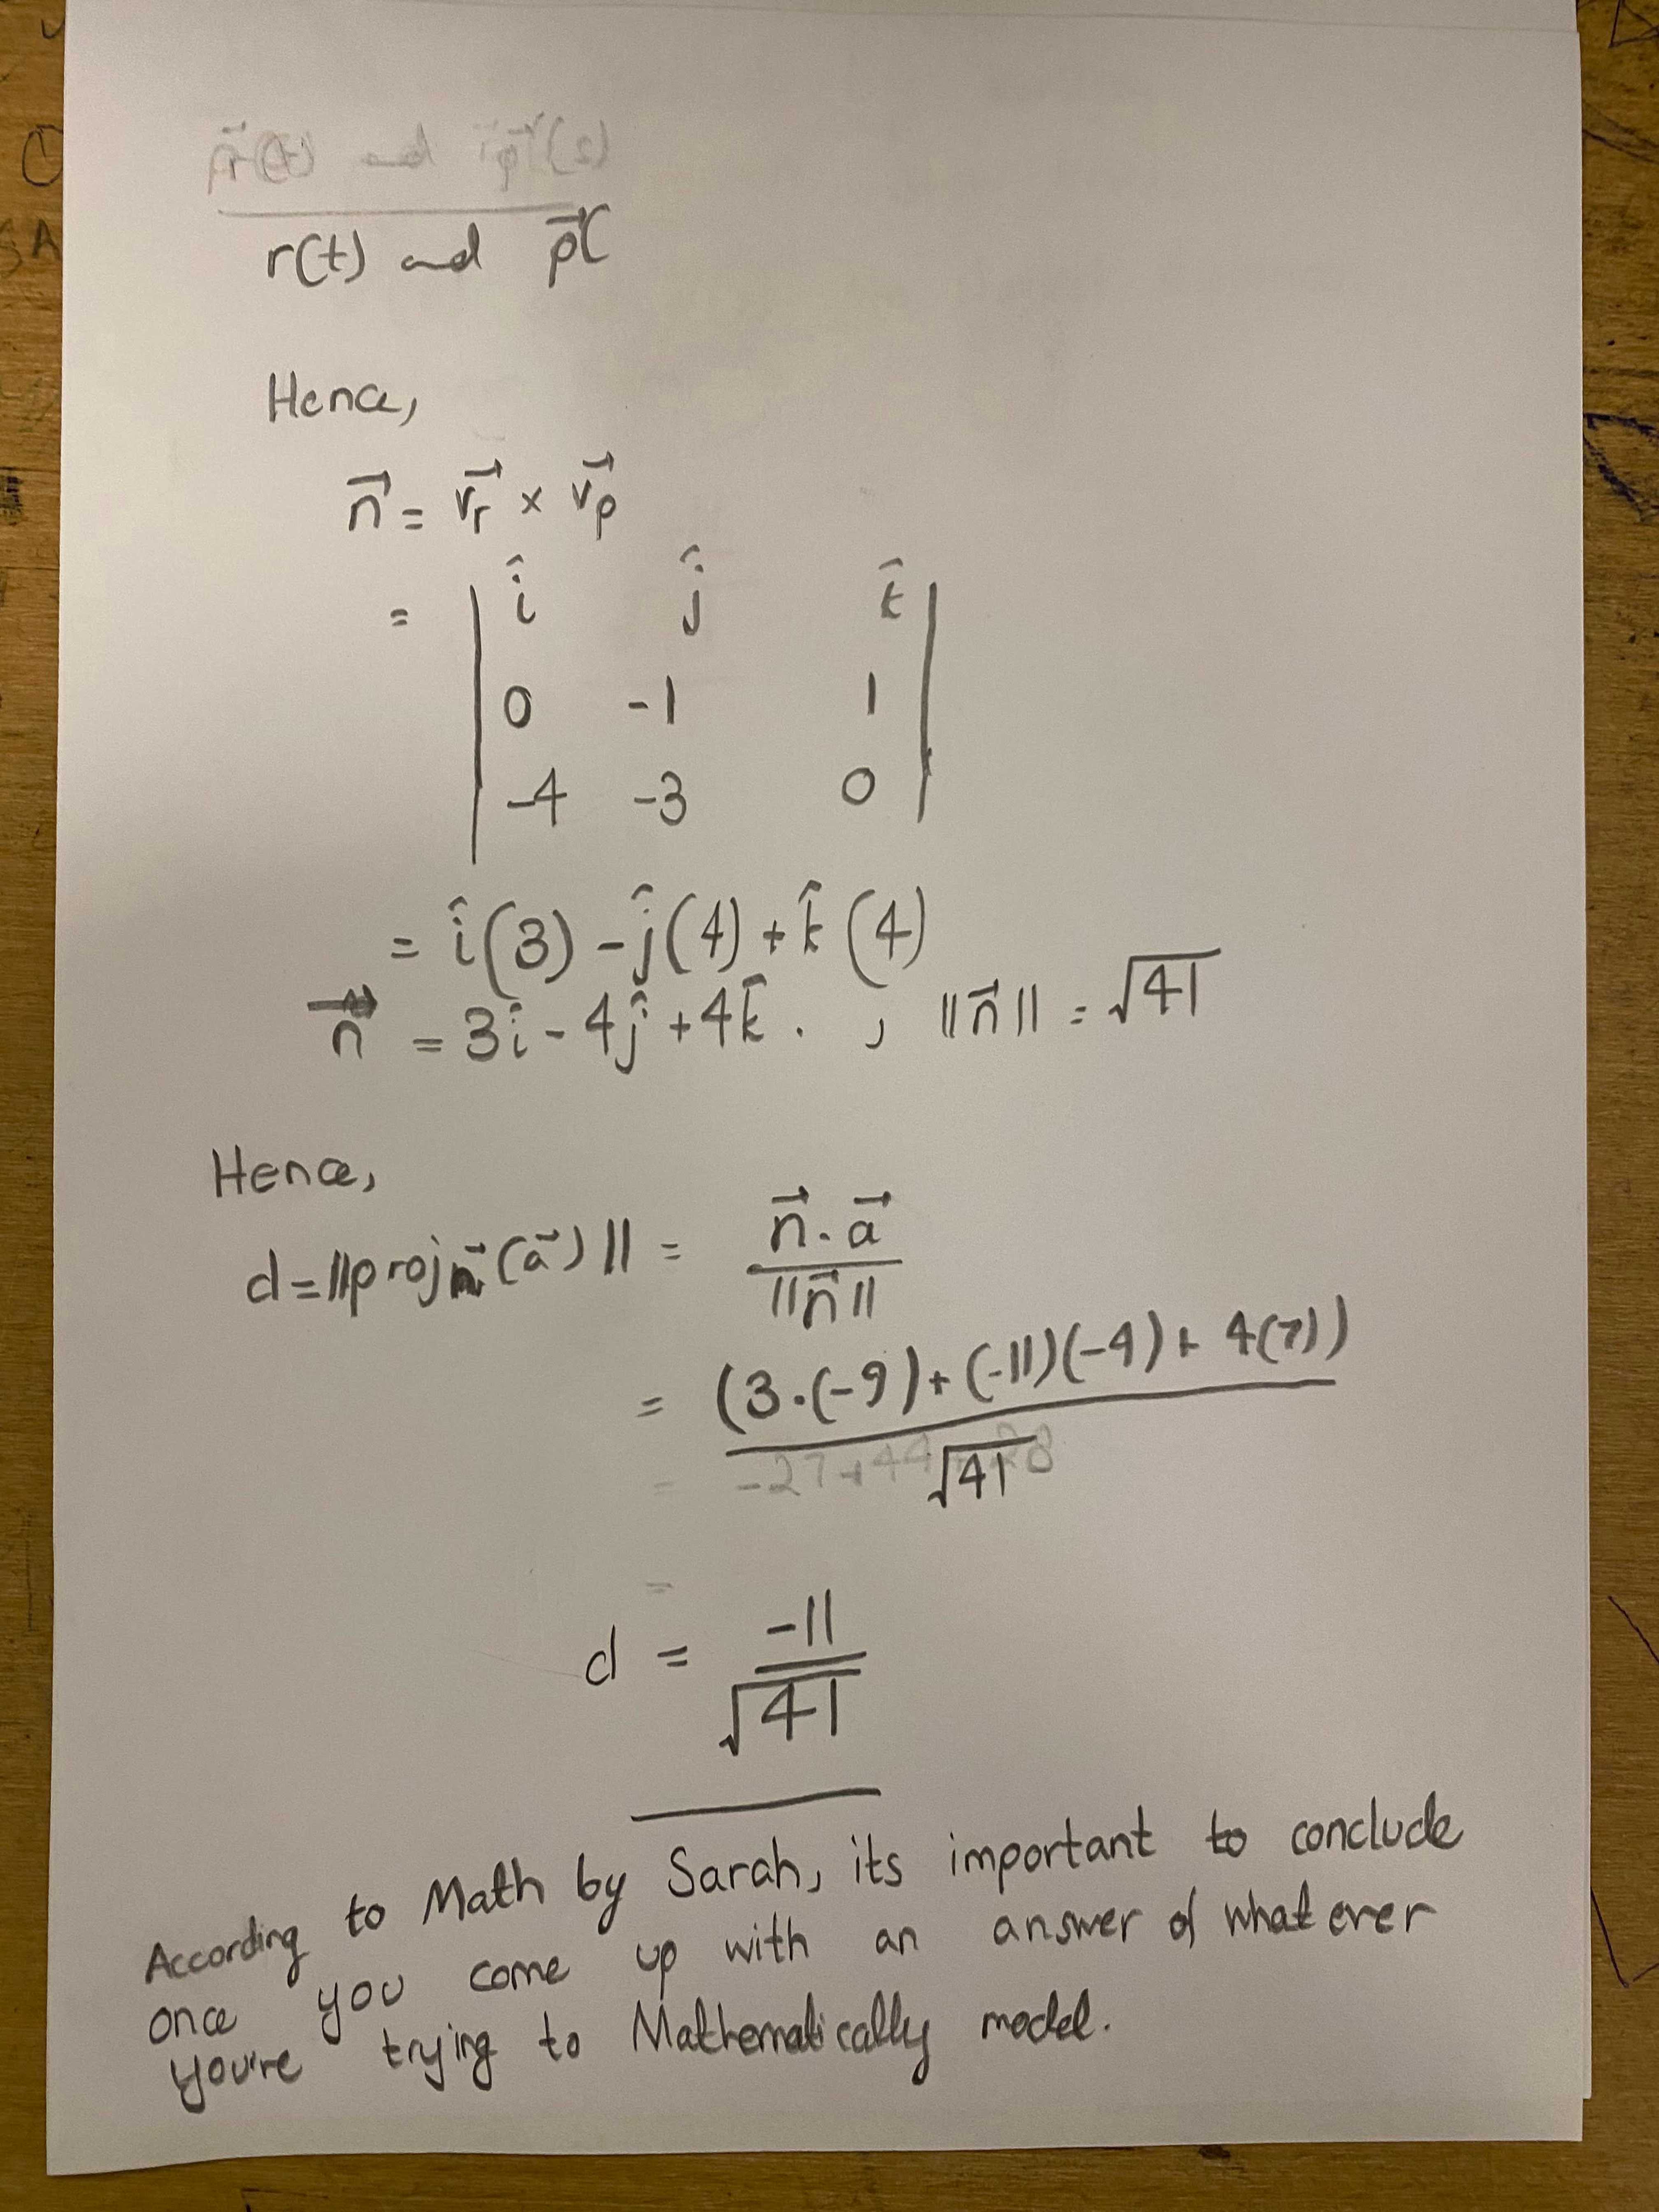 r⃗(t) and p⃗(s)
r(t) and p⃗(
Hence,
n⃗ = v⃗r × v⃗p
= | î ĵ k̂ |
| 0 -1 1 |
| -4 -3 0 |
= î(3) - ĵ(4) + k̂(4)
n⃗ = 3î - 4ĵ + 4k̂ . , ||n⃗|| = √41
Hence,
d = ||proj n⃗ (a⃗)|| = n⃗ . a⃗ / ||n⃗||
= (3.(-9) + (-11)(-4) + 4(7)) / √41
= -27 + 44 + 28
=
d = -11 / √41
According to Math by Sarah, its important to conclude
once you come up with an answer of what ever
you're trying to Mathematically model.